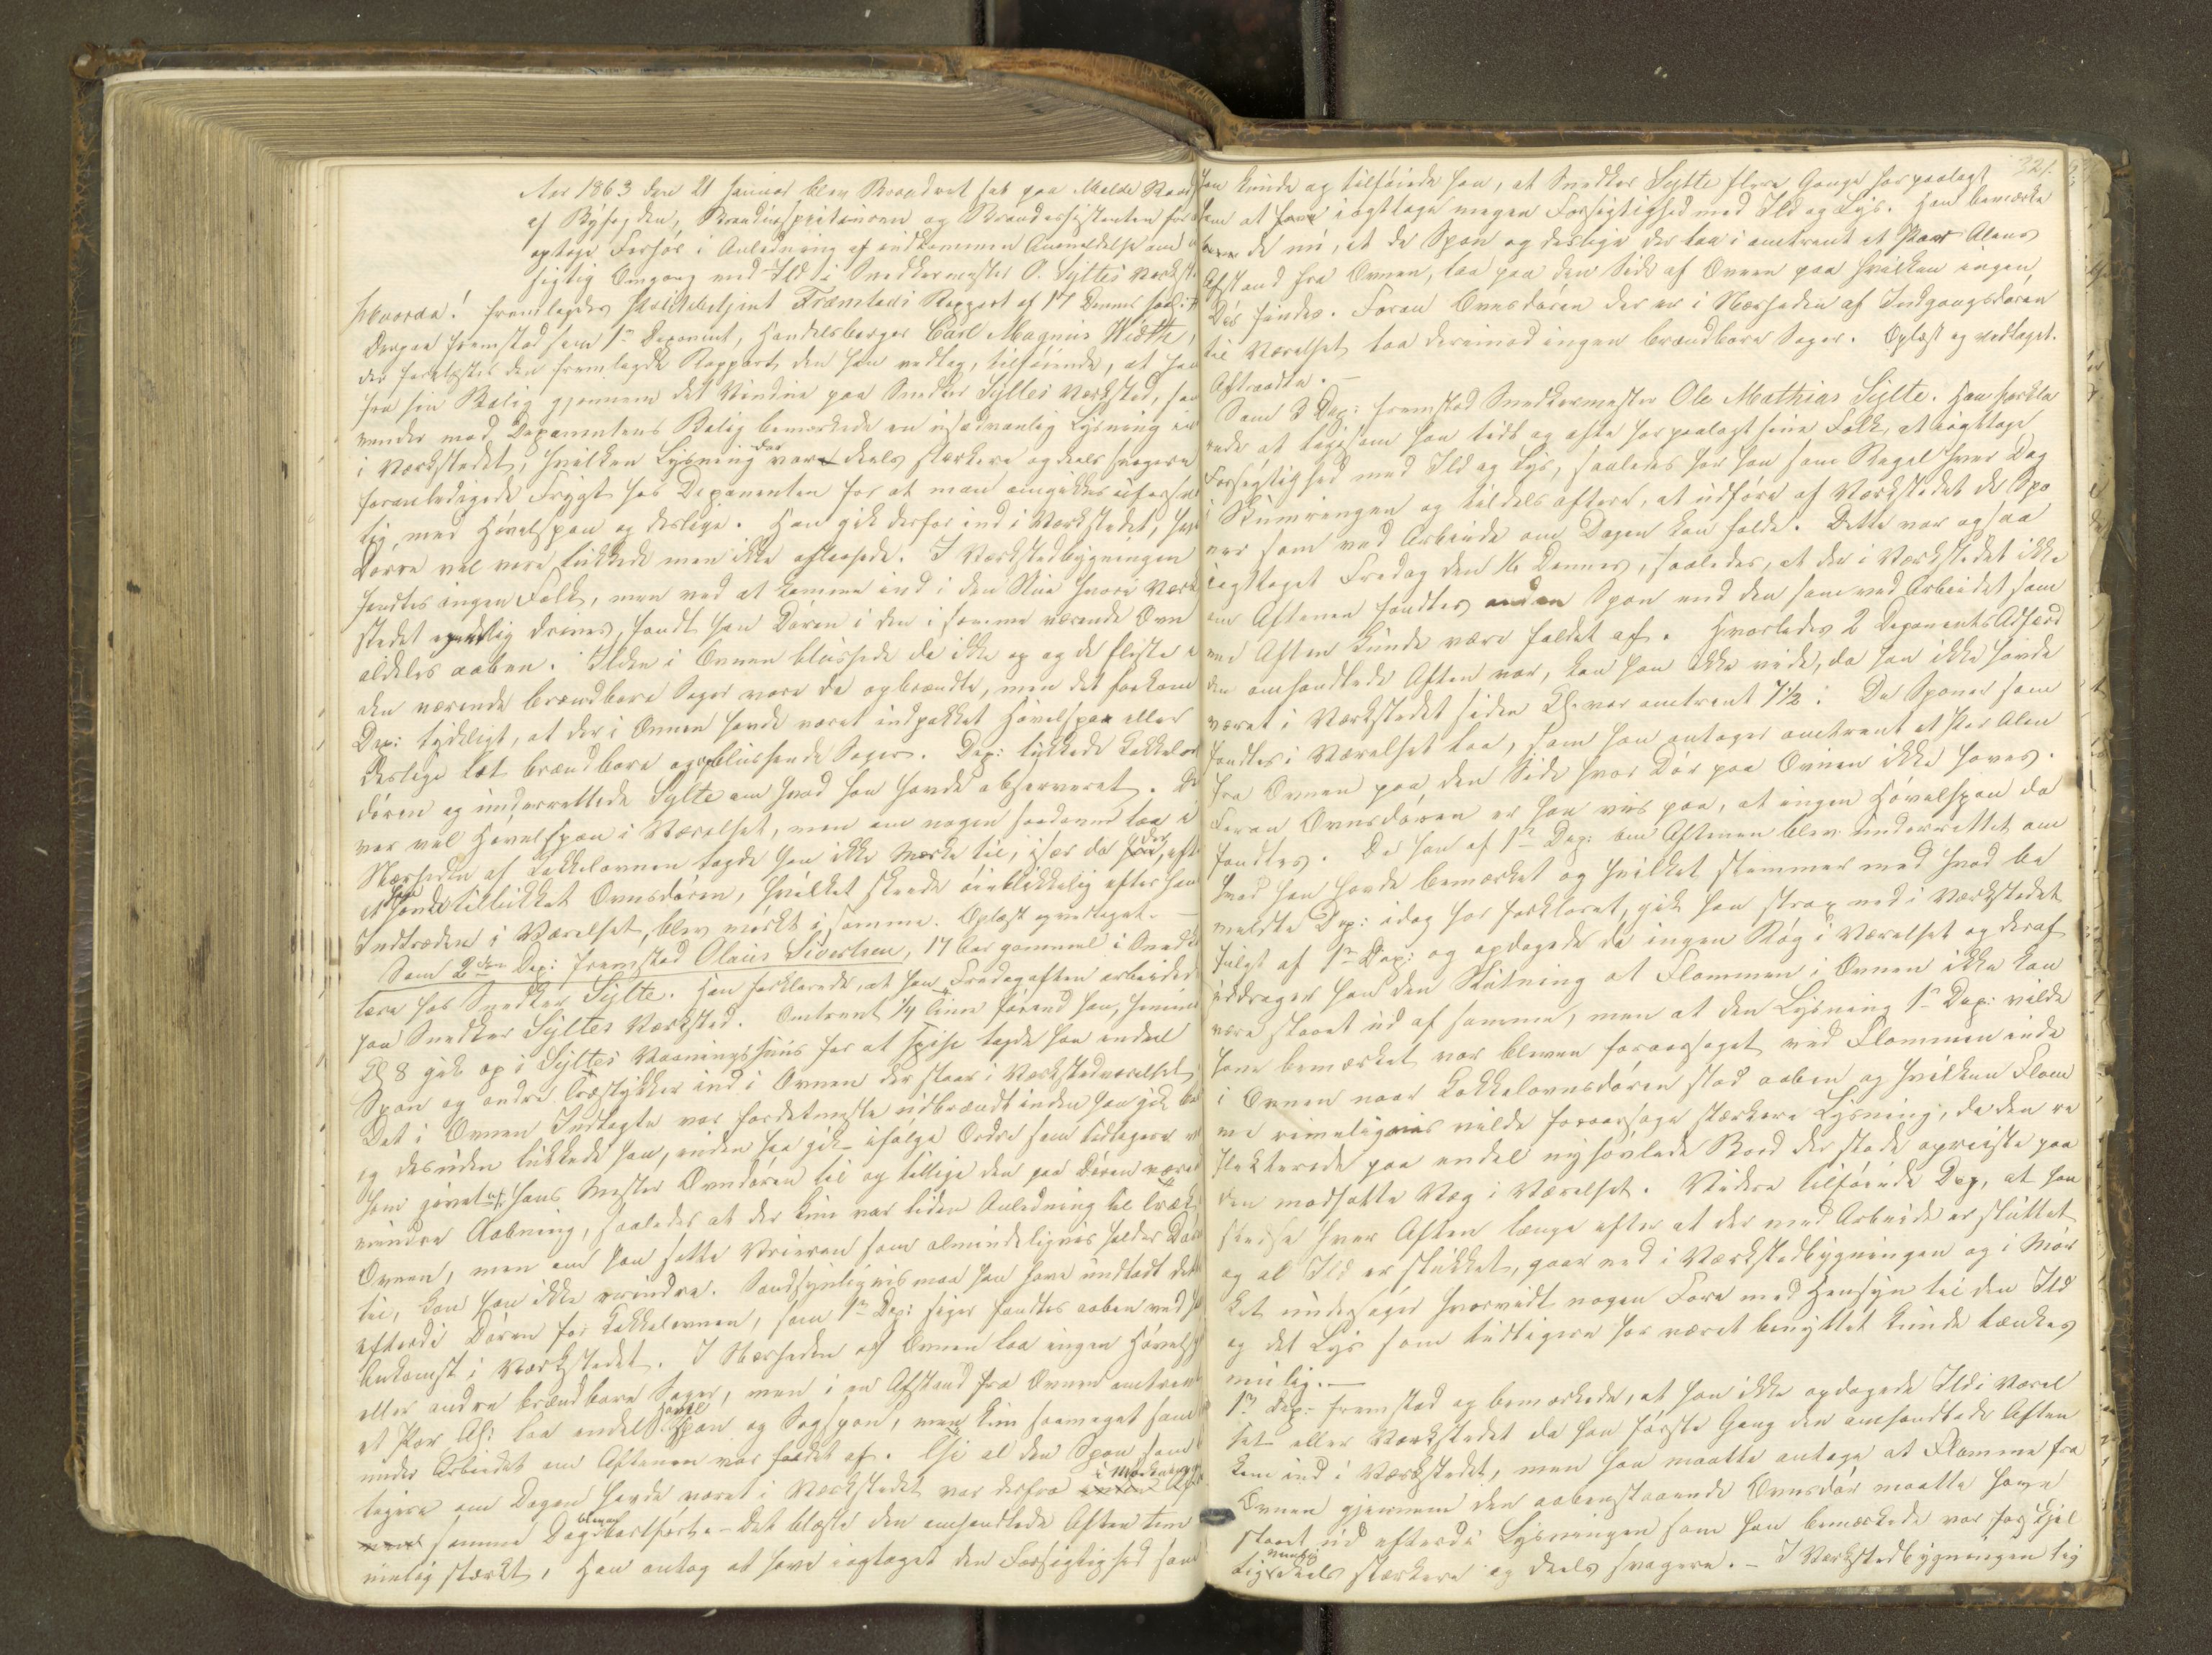 Aar 1863 den 21 Januar blev Brandret sat paa Molde Raad
af Byfogden, Brandinspeiteuren og Brandassistenten for at
optage Forhør i Anledning af indkommen Anmeldelse om
sigtig Omgang med Ild i Snedkermester O. Syltes Værkst
Hvorda! fremlagdes Politibetjent Træmsteds Rapport af 17 Dennes
Derpaa fremstod som 1ste Deponent, Handelsborger Carl Magnus Wiedth,
der forelæstes den fremlagde Rapport, den han vedtog, tilføiende, at han
fra sin Bolig gjennem det Vindue paa Snedker Syltes Værksted, som
vender mod Deponentens Bolig bemærkede en usædvanlig Lysning
i Værkstedet, hvilken Lysning der var deels stærkere og deels svagere
foranledigede Frygt hos Deponenten for at man omgikkes uforsig
tig med Høvelspon og deslige. Han gik derfor ind i Værkstedet, hvis
Dørre vel vare lukkede men ikke aflaasede. I Værkstedbygningen
fandtes ingen Folk, men ved at komme ind i den Stue hvori Værk
stedet egentlig drives, fandt han Døren i den i samme værende Ovn
aldeles aaben. Ilden i Ovnen blussede da ikke op og de fleste i
den værende brændbare Sager vare da opbrændte, men det forekom
Dep: tydeligt, at der i Ovnen havde været indpakket Høvelspon eller
deslige let brændbare og opblussende Sager. Dep: lukkede Kakkelovns
døren og underrettede Sylte om hvad han havde observeret. Der
var vel Høvelspon i Værelset, men om nogen saadanne laa i
Nærheden af Kakkelovnen lagde han ikke Mærke til, især da der, efter
at han havde tillukket Ovnsdøren, hvilket skeede øieblikkelig efter hans
Indtræden i Værelset, blev mørkt i samme. Oplæst og vedtaget. —
Som 2den Dep: fremstod Olaus Sivertsen, 17 Aar gammel i Snedker
lære hos Snedker Sylte. Han forklarede, at han Fredagaften arbeidede
paa Snedker Syltes Værksted. Omtrent 1/4 Time førend han, henimod
Kl 8 gik op i Syltes Vaaningshuus for at spise lagde han endeel
Spon og andre Træstykker ind i Ovnen der staar i Værkstedværelset.
Det i Ovnen Indlagte var fordetmeste udbrændt inden han gik bort
og desuden lukkede han, inden han gik - ifølge Ordre som tidligere
ham givet af hans Mester Ovndøren til og tillige den paa Døren værende
mindre Aabning, saaledes at der kun var liden Anledning til Træk i
Ovnen, men om han satte Vrieren som almindeligvis holder Døren
til, kan han ikke erindre. Sandsynligvis maa han have undladt dette
efterdi Døren for Kakkelovnen, som 1ste Dep: siger fandtes aaben ved hans
Ankomst i Værkstedet. I Nærheden af Ovnen laa ingen Høvelspon
eller andre brændbare Sager, men i en Afstand fra Ovnen omtrent
et Par Al: laa endeel Høvelspon og Sagspon, men kun saameget som
under Arbeidet om Aftenen var faldet af. Thi al den Spon som
tidligere om Dagen havde været i Værkstedet var derfra i Mørkningen
samme Dag bleven bortført. – Det blæste den omhandlede Aften tem
melig stærkt, Han antog at have iagttaget den Forsigtighed som
321.
han kunde og tilføiede han, at Snedker Sylte flere Gange har paalagt
ham at iagttage megen Forsigtighed med Ild og Lys. Han bemærke
de nu, at de Spon og deslige der laa i omtrent et Par Alens
Afstand fra Ovnen, laa paa den Side af Ovnen paa hvilken ingen
Dør findes. Foran Ovnsdøren der er i Nærheden af Indgangsdøren
til Værelset laa derimod ingen brændbare Sager. Oplæst og vedtaget.
Aftraadte. —
Som 3 Dep: fremstod Snedkermester Ole Mathias Sylte. Han forkla
rede at ligesom han tidt og ofte har paalagt sine Folk, at iagttage
Forsigtighed med Ild og Lys, saaledes har han som Regel hver Dag
i Skumringen og tildels oftere, at udføre af Værkstedet de Spo
ner som ved Arbeide om Dagen kan falde. Dette var ogsaa
iagttaget Fredag den 16 Dennes, saaledes, at der i Værkstedet ikke
om Aftenen fandtes anden Spon end den som ved Arbeidet som
med Aften kunde være faldet af. Hvorledes 2 Deponents Adfærd
den omhandlede Aften var, kan han ikke vide, da han ikke havde
været i Værkstedet siden Kl. var omtrent 7 1/2. De Sponer som
fandtes i Værelset laa, som han antager omtrent et Par Alen
fra Ovnen paa den Side hvor Dør paa Ovnen ikke haves.
Foran Ovnsdøren er han vis paa, at ingen Høvelspon da
fandtes. Da han af 1ste Dep: om Aftenen blev underrettet om
hvad han havde bemærket og hvilket stemmer med hvad be
meldte Dep: idag har forklaret, gik han strax ned i Værkstedet
fulgt af 1ste Dep: og opdagede da ingen Røg i Værelset og deraf
uddrager han den Slutning at Flammen i Ovnen ikke kan
være slaaet ud af samme, men at den Lysning 1ste Dep: vilde
have bemærket var bleven foraarsaget ved Flammen inde
i Ovnen naar Kakkelovnsdøren stod aaben og hvilken Flam
me rimeligviis vilde foraarsage stærkere Lysning, da den re
flekterede paa endel nyhøvlede Bord der stode opreiste paa
den modsatte Væg i Værelset. Videre tilføiede Dep, at han
stedse hver Aften længe efter at der med Arbeide er sluttet
og al Ild er slukket, gaar ned i Værkstedbygningen og i Mør
ket undersøger hvorvidt nogen Fare med Hensyn til den Ild
og det Lys som tidligere har været benyttet kunde tænkes
mulig. —
1ste Dep: fremstod og bemærkede, at han ikke opdagede Ild i Værel
set eller Værkstedet da han første Gang den omhandlede Aften
kom ind i Værkstedet, men han maatte antage at Flamme fra
Ovnen gjennem den aabenstaaende Ovnsdør maatte have
slaaet ud efterdi Lysningen som han bemærkede var forskjel
lig nemlig deels stærkere og deels svagere. – I Værkstedbygningen lig